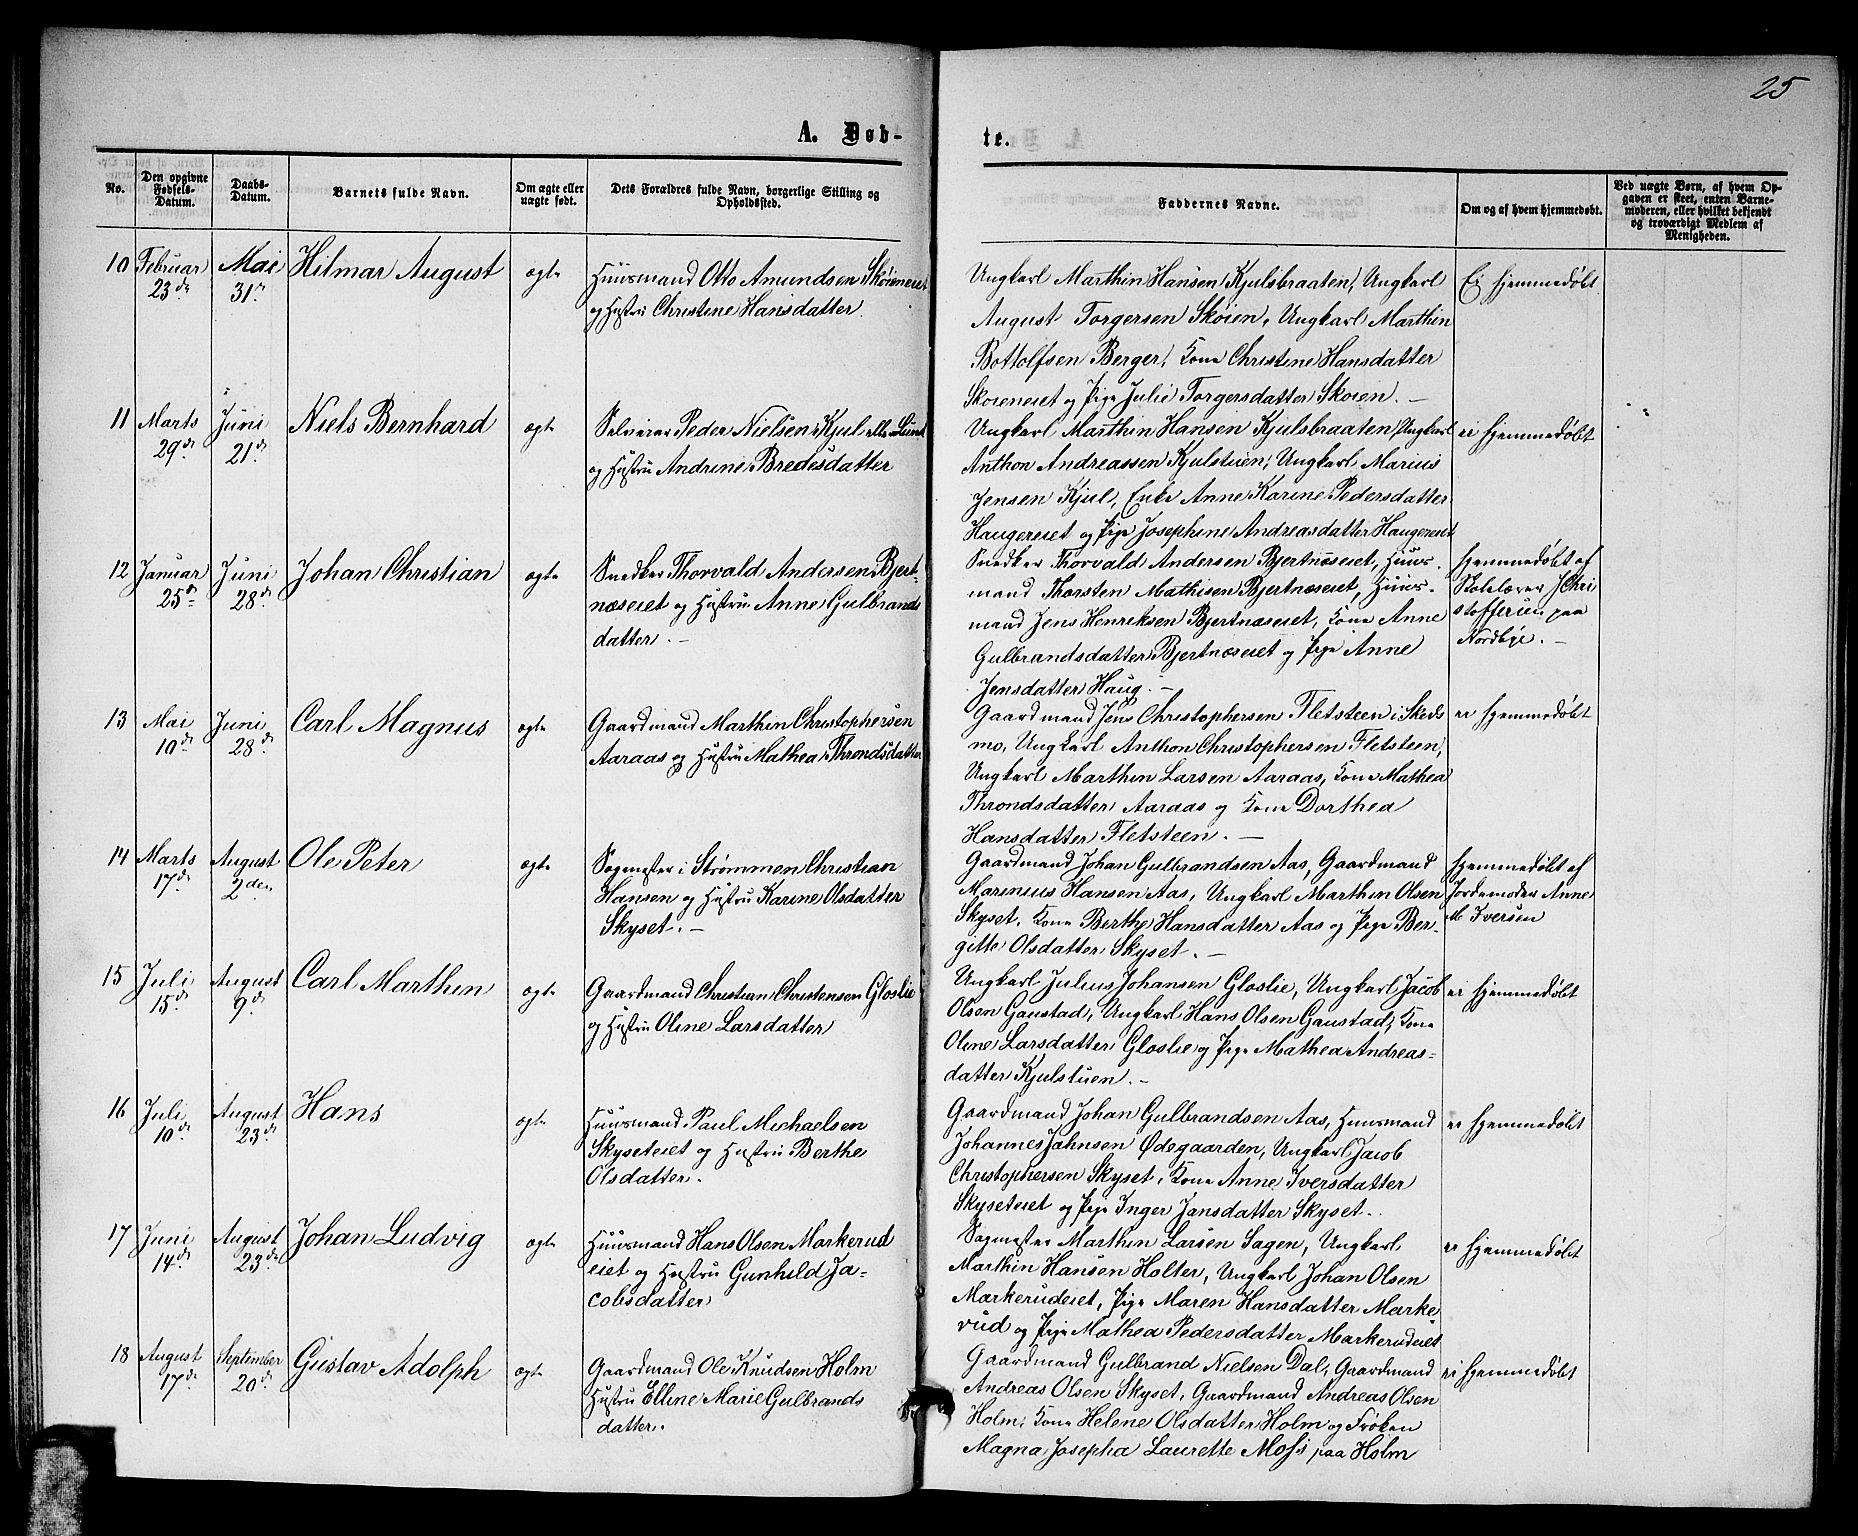 25
A. Døb-
te.
No.
Den opgivne Fødsels-Datum.
Daabs-Datum.
Barnets fulde Navn.
Om ægte eller uægte født.
Dets Forældres fulde Navn, borgerlige Stilling og Opholdssted.
Faddernes Navne.
Om og af hvem hjemmedøbt.
Ved uægte Børn, af hvem Op-
gaven er skeet, enten Barne-
moderen, eller hvilket bekjendt
og troværdigt Medlem af
Menigheden.
10 Februar 23de
Mai 31te
Hilmar August
ægte
Huusmand Otto Amundsen Skøieneiet
og Hustru Christine Hansdatter
Ungkarl Marthin Hansen Kjulsbraaten, Ungkarl
August Torgersen Skøien, Ungkarl Marthin
Bottolfsen Berger, Kone Christine Hansdatter
Skoieneiet og Pige Julie Torgersdatter Skoien. –
Ei hjemmedøbt
11 Marts 29de
Juni 21de
Niels Bernhard
ægte
Selveier Peder Nielsen Kjul eller Lund
og Hustru Andrine Bredesdatter
Ungkarl Marthin Hansen Kjulsbraaten, Ungkarl
Anthon Andreassen Kjulstuen, Ungkarl Marius
Jensen Kjul, Enke Anne Karine Pedersdatter
Haugereiet og Pige Josephine Andreasdatter Haugereiet
ei hjemmedøbt
12 Januar 25de
Juni 28de
Johan Christian
ægte
Snedker Thorvald Andersen Bjert-
næseiet og Hustru Anne Gulbrands
datter. –
Snedker Thorvald Andersen Bjertnæseiet, Huus-
mand Thorsten Mathisen Bjertnæseiet, Huus-
mand Jens Henriksen Bjertnæseiet, Kone Anne
Gulbrandsdatter Bjertnæseiet og Pige Anne
Jensdatter Haug. –
Hjemmedøbt af
Skolelærer J Chri
stoffersen paa
Nordbye. –
13 Mai 10de
Juni 28de
Carl Magnus
ægte
Gaardmand Marthin Christophersen
Aaraas og Hustru Mathea Throndsdatter
Gaardmand Jens Christophersen Fletsteen i Skeds
mo, Ungkarl Anthon Christophersen Fletsteen,
Ungkarl Marthin Larsen Aaraas, Kone Mathea
Throndsdatter Aaraas og Kone Dorthea
Hansdatter Fletsteen. –
ei hjemmedøbt
14 Marts 17de
August 2den
Ole Peter
ægte
Sagmester i Strømmen Christian
Hansen og Hustru Karine Olsdatter
Skyset. –
Gaardmand Johan Gulbrandsen Aas, Gaardmand
Marinius Hansen Aas, Ungkarl Marthin Olsen
Skyset, Kone Berthe Hansdatter Aas og Pige Ber-
gitte Olsdatter Skyset. –
Hjemmedøbt af
Jordemoder Anne
M Iversen
15 Juli 15de
August 9de
Carl Marthin
ægte
Gaardmand Christian Christensen Gloslie
og Hustru Oline Larsdatter
Ungkarl Julius Johansen Gloslie, Ungkarl Jacob
Olsen Gaustad, Ungkarl Hans Olsen Gaustad, Kone
Oline Larsdatter Gloslie og Pige Mathea Andreas-
datter Kjulstuen. –
ei hjemmedøbt
16 Juli 10de
August 23de
Hans
ægte
Huusmand Paul Michaelsen
Skyseteiet og Hustru Berthe
Olsdatter.
Gaardmand Johan Gulbrandsen Aas, Huusmand
Johannes Jahnsen Ødegaarden, Ungkarl Jacob
Christophersen Skyset, Kone Anne Iversdatter
Skyseteiet og Pige Inger Jansdatter Skyset.
ei hjemmedøbt
17 Juni 14de
August 23de
Johan Ludvig
ægte
Huusmand Hans Olsen Markerud
eiet og Hustru Gunhild Ja-
cobsdatter
Sagmester Marthin Larsen Sagen, Ungkarl
Marthin Hansen Holter, Ungkarl Johan Olsen
Markerudeiet, Pige Maren Hansdatter Marke-
rud og Pige Mathea Pedersdatter Markerudeiet
ei hjemmedøbt
18 August 17de
September 20de
Gustav Adolph
ægte
Gaardmand Ole Knudsen Holm
Hustru Elline Marie Gulbrands
datter.
Gaardmand Gulbrand Nielsen Dal, Gaardmand
Andreas Olsen Skyset, Gaardmand Andreas Olsen
Holm, Kone Helene Olsdatter Holm og Frøken
Magna Josepha Laurette Moss paa Holm
ei hjemmedøbt